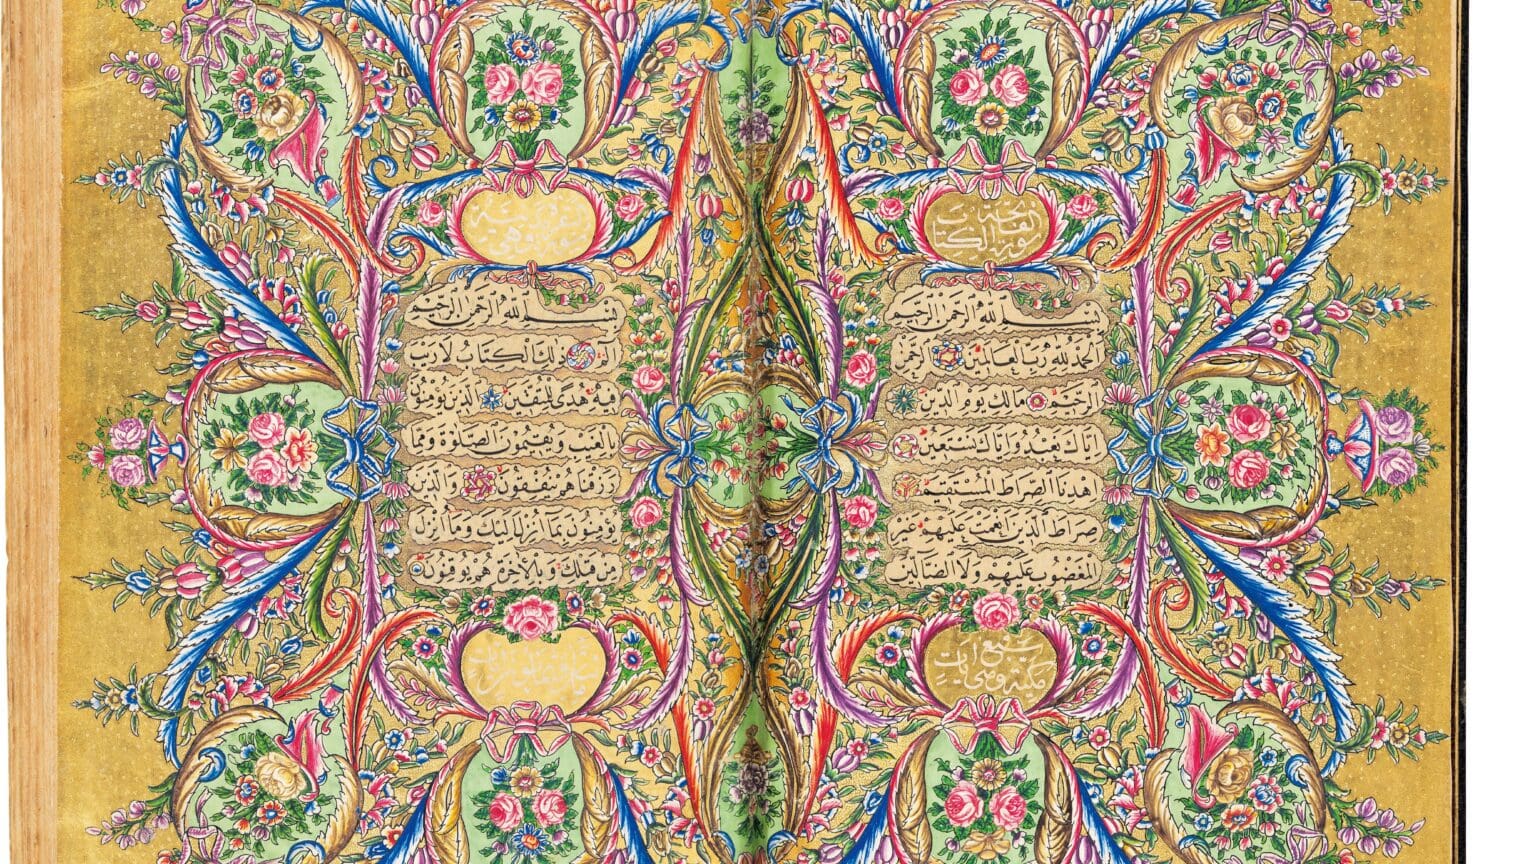 سورة فاتحة الكتاب
بسم الله الرحمن الرحيم
الحمد لله رب العالمين الرحمن
الرحيم مالك يوم الدين
اياك نعبد واياك نستعين
اهدنا الصراط المستقيم
صراط الذين انعمت عليهم غير
المغضوب عليهم ولا الضالين
مكية وهي سبع ايات
بسم الله الرحمن الرحيم
الم ذلك الكتاب لا ريب
فيه هدى للمتقين الذين يؤمنون
بالغيب ويقيمون الصلوة ومما
رزقناهم ينفقون والذين
يؤمنون بما انزل اليك وما انزل
من قبلك وبالاخرة هم يوقنون